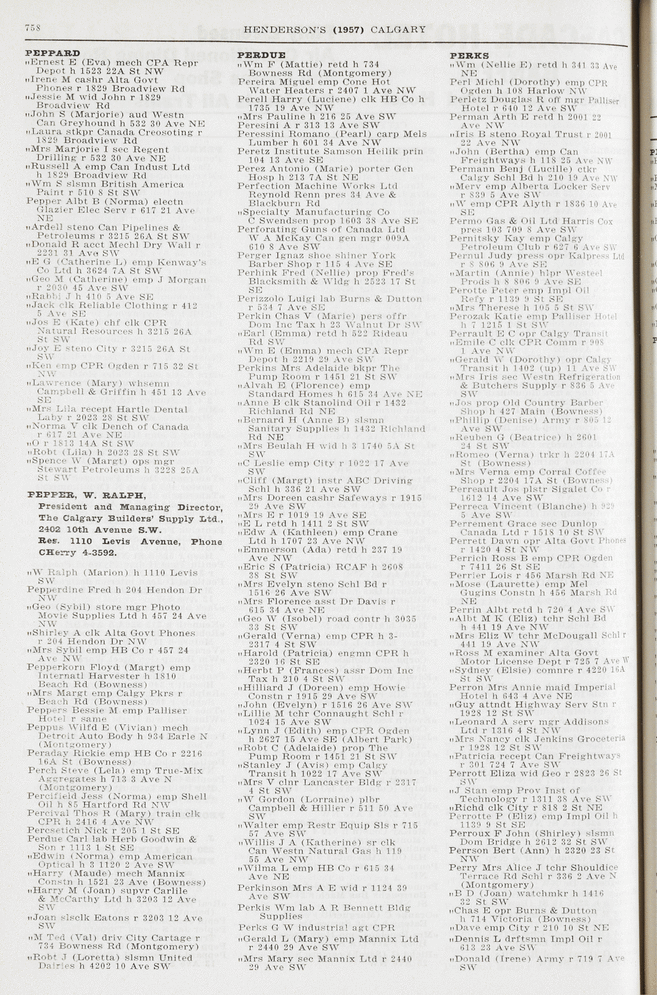 758
HENDERSON'S (1957) CALGARY
PEPPARD
„Ernest E (Eva) mech CPA Repr
Depot h 1523 22A St NW
„Irene M cashr Alta Govt
Phones r 1829 Broadview Rd
„Jessie M wid John r 1829
Broadview Rd
„John S (Marjorie) aud Westn
Can Greyhound h 532 30 Ave NE
„Laura stkpr Canada Creosoting r
1829 Broadview Rd
„Mrs Marjorie I sec Regent
Drilling r 532 30 Ave NE
„Russell A emp Can Indust Ltd
h 1829 Broadview Rd
„Wm S slsmn British America
Paint r 510 8 St SW
Pepper Albt B (Norma) electn
Glazier Elec Serv r 617 21 Ave
NE
„Ardell steno Can Pipelines &
Petroleums r 3215 26A St SW
„Donald R acct Mechl Dry Wall r
2231 31 Ave SW
„E G (Catherine L) emp Kenway's
Co Ltd h 3624 7A St SW
„Geo M (Catherine) emp J Morgan
r 2030 45 Ave SW
„Rabbi J h 410 5 Ave SE
„Jack clk Reliable Clothing r 412
5 Ave SE
„Jos E (Kate) chf clk CPR
Natural Resources h 3215 26A
St SW
„Joy E steno City r 3215 26A St
SW
„Ken emp CPR Ogden r 715 32 St
NW
„Lawrence (Mary) whsemn
Campbell & Griffin h 451 13 Ave
SE
„Mrs Lila recept Hartle Dental
Laby r 2023 28 St SW
„Norma V clk Dench of Canada
r 617 21 Ave NE
„O r 1813 14A St SW
„Robt (Lila) h 2023 28 St SW
„Spence W (Margt) ops mgr
Stewart Petroleums h 3228 25A
St SW
PEPPER, W. RALPH,
President and Managing Director,
The Calgary Builders' Supply Ltd.,
2402 10th Avenue S.W.
Res. 1110 Levis Avenue, Phone
CHerry 4-3592.
„W Ralph (Marion) h 1110 Levis
SW
Pepperdine Fred h 204 Hendon Dr
NW
„Geo (Sybil) store mgr Photo
Movie Supplies Ltd h 457 24 Ave
NW
„Shirley A clk Alta Govt Phones
r 204 Hendon Dr NW
„Mrs Sybil emp HB Co r 457 24
Ave NW
Pepperkorn Floyd (Margt) emp
Internatl Harvester h 1810
Beach Rd (Bowness)
„Mrs Margt emp Calgy Pkrs r
Beach Rd (Bowness)
Peppers Bessie M emp Palliser
Hotel r same
Peppus Wilfd E (Vivian) mech
Detroit Auto Body h 934 Earle N
(Montgomery)
Peraday Rickie emp HB Co r 2216
16A St (Bowness)
Perch Steve (Lela) emp True-Mix
Aggregates h 713 3 Ave N
(Montgomery)
Percifield Jess (Norma) emp Shell
Oil h 85 Hartford Rd NW
Percival Thos R (Mary) train clk
CPR h 2416 4 Ave NW
Percsetich Nick r 205 1 St SE
Perdue Carl lab Herb Goodwin &
Son r 1113 1 St SE
„Edwin (Norma) emp American
Optical h 3 1120 2 Ave SW
„Harry (Maude) mech Mannix
Constn h 1521 23 Ave (Bowness)
„Harry M (Joan) supvr Carlile
& McCarthy Ltd h 3203 12 Ave
SW
„Joan slsclk Eatons r 3203 12 Ave
SW
„M Ted (Val) driv City Cartage r
734 Bowness Rd (Montgomery)
„Robt J (Loretta) slsmn United
Dairies h 4202 10 Ave SW
PERDUE
„Wm F (Mattie) retd h 734
Bowness Rd (Montgomery)
Pereira Miguel emp Cone Hot
Water Heaters r 2407 1 Ave NW
Perell Harry (Luciene) clk HB Co h
1735 19 Ave NW
„Mrs Pauline h 216 25 Ave SW
Peresini A r 313 13 Ave SW
Peressini Romano (Pearl) carp Mels
Lumber h 601 34 Ave NW
Peretz Institute Samson Heilik prin
104 13 Ave SE
Perez Antonio (Marie) porter Gen
Hosp h 213 7A St NE
Perfection Machine Works Ltd
Reynold Renn pres 34 Ave &
Blackburn Rd
„Specialty Manufacturing Co
C Swendsen prop 1603 38 Ave SE
Perforating Guns of Canada Ltd
W A McKay Can gen mgr 009A
610 8 Ave SW
Perger Ignaz shoe shiner York
Barber Shop r 115 4 Ave SE
Perhink Fred (Nellie) prop Fred's
Blacksmith & Wldg h 2523 17 St
SE
Perizzolo Luigi lab Burns & Dutton
r 534 7 Ave SE
Perkin Chas V (Marie) pers offr
Dom Inc Tax h 23 Walnut Dr SW
„Earl (Emma) retd h 522 Rideau
Rd SW
„Wm E (Emma) mech CPA Repr
Depot h 2219 29 Ave SW
Perkins Mrs Adelaide bkpr The
Pump Room r 1451 21 St SW
„Alvah E (Florence) emp
Standard Homes h 615 34 Ave NE
„Anne B clk Stanolind Oil r 1432
Richland Rd NE
„Bernard H (Anne B) slsmn
Sanitary Supplies h 1432 Richland
Rd NE
„Mrs Beulah H wid h 3 1740 5A St
SW
„C Leslie emp City r 1022 17 Ave
SW
„Cliff (Margt) instr ABC Driving
Schl h 336 21 Ave SW
„Mrs Doreen cashr Safeways r 1915
29 Ave SW
„Mrs E r 1019 19 Ave SE
„E L retd h 1411 2 St SW
„Edw A (Kathleen) emp Crane
Ltd h 1707 23 Ave NW
„Emmerson (Ada) retd h 237 19
Ave NW
„Eric S (Patricia) RCAF h 2608
38 St SW
„Mrs Evelyn steno Schl Bd r
1516 26 Ave SW
„Mrs Florence asst Dr Davis r
615 34 Ave NE
„Geo W (Isobel) road contr h 3035
33 St SW
„Gerald (Verna) emp CPR h 3-
2317 4 St SW
„Harold (Patricia) engmn CPR h
2320 16 St SE
„Herbt P (Frances) assr Dom Inc
Tax h 210 4 St SW
„Hilliard J (Doreen) emp Howie
Constn r 1915 29 Ave SW
„John (Evelyn) r 1516 26 Ave SW
„Lillie M tchr Connaught Schl r
1024 15 Ave SW
„Lynn J (Edith) emp CPR Ogden
h 2627 15 Ave SE (Albert Park)
„Robt C (Adelaide) prop The
Pump Room r 1451 21 St SW
„Stanley J (Avis) emp Calgy
Transit h 1022 17 Ave SW
„Mrs V clnr Lancaster Bldg r 2317
4 St SW
„W Gordon (Lorraine) plbr
Campbell & Hillier r 511 50 Ave
SW
„Walter emp Restr Equip Sls r 715
57 Ave SW
„Willis J A (Katherine) sr clk
Can Westn Natural Gas h 119
55 Ave NW
„Wilma L emp HB Co r 615 34
Ave NE
Perkinson Mrs A E wid r 1124 39
Ave SW
Perkis Wm lab A R Bennett Bldg
Supplies
Perks G W industrial agt CPR
„Gerald L (Mary) emp Mannix Ltd
r 2440 29 Ave SW
„Mrs Mary sec Mannix Ltd r 2440
29 Ave SW
PERKS
„Wm (Nellie E) retd h 341 33 Ave
NE
Perl Michl (Dorothy) emp CPR
Ogden h 108 Harlow NW
Perletz Douglas R off mgr Palliser
Hotel r 640 12 Ave SW
Perman Arth E retd h 2001 22
Ave NW
„Iris B steno Royal Trust r 2001
22 Ave NW
„John (Bertha) emp Can
Freightways h 118 25 Ave NW
Permann Benj (Lucille) ctkr
Calgy Schl Bd h 210 19 Ave NW
„Merv emp Alberta Locker Serv
r 839 5 Ave SW
„W emp CPR Alyth r 1836 10 Ave
SE
Permo Gas & Oil Ltd Harris Cox
pres 103 709 8 Ave SW
Pernitsky Kay emp Calgy
Petroleum Club r 627 6 Ave SW
Pernul Judy press opr Kalpress Ltd
r 8 806 9 Ave SE
„Martin (Annie) hlpr Westeel
Prods h 8 806 9 Ave SE
Perotte Peter emp Impl Oil
Refy r 1139 9 St SE
„Mrs Therese h 105 5 St SW
Perozak Katie emp Palliser Hotel
h 7 1215 1 St SW
Perrault E C opr Calgy Transit
„Emile C clk CPR Comm r 908
1 Ave NW
„Gerald W (Dorothy) opr Calgy
Transit h 1402 (up) 11 Ave SW
„Mrs Iris sec Westn Refrigeration
& Butchers Supply r 836 5 Ave
SW
„Jos prop Old Country Barber
Shop h 427 Main (Bowness)
„Phillip (Denise) Army r 805 12
Ave SW
„Reuben G (Beatrice) h 2601
24 St SW
„Romeo (Verna) trkr h 2204 17A
St (Bowness)
„Mrs Verna emp Corral Coffee
Shop r 2204 17A St (Bowness)
Perreault Jos plstr Sigalet Co r
1612 14 Ave SW
Perreca Vincent (Blanche) h 929
5 Ave SW
Perrement Grace sec Dunlop
Canada Ltd r 1518 10 St SW
Perrett Dawn opr Alta Govt Phones
r 1420 4 St NW
Perrich Ross B emp CPR Ogden
r 7411 26 St SE
Perrier Lois r 456 Marsh Rd NE
„Mose (Laurette) emp Mel
Gugins Constn h 456 Marsh Rd
NE
Perrin Albt retd h 720 4 Ave SW
„Albt M K (Eliz) tchr Schl Bd
h 441 19 Ave NW
„Mrs Eliz W tchr McDougall Schl r
441 19 Ave NW
„Ross M examiner Alta Govt
Motor License Dept r 725 7 Ave W
„Sydney (Elsie) comnre r 4220 16A
St SW
Perron Mrs Annie maid Imperial
Hotel h 643 4 Ave NE
„Guy attndt Highway Serv Stn r
1928 12 St SW
„Leonard A serv mgr Addisons
Ltd r 1316 4 St NW
„Mrs Nancy clk Jenkins Groceteria
r 1928 12 St SW
„Patricia recept Can Freightways
r 301 724 7 Ave SW
Perrott Eliza wid Geo r 2823 26 St
SW
„J Stan emp Prov Inst of
Technology r 1311 38 Ave SW
„Richd clk City r 818 2 St NE
Perrotte P (Eliz) emp Impl Oil h
1139 9 St SE
Perroux F John (Shirley) slsmn
Dom Bridge h 2612 32 St SW
Perrson Bert (Ann) h 2320 23 St
NW
Perry Mrs Alice J tchr Shouldice
Terrace Rd Schl r 336 2 Ave N
(Montgomery)
„B D (Joan) watchmkr h 1416
32 St SW
„Chas E opr Burns & Dutton
h 714 Victoria (Bowness)
„Dave emp City r 210 10 St NE
„Dennis L drftsmn Impl Oil r
613 23 Ave SW
„Donald (Irene) Army r 719 7 Ave
SW